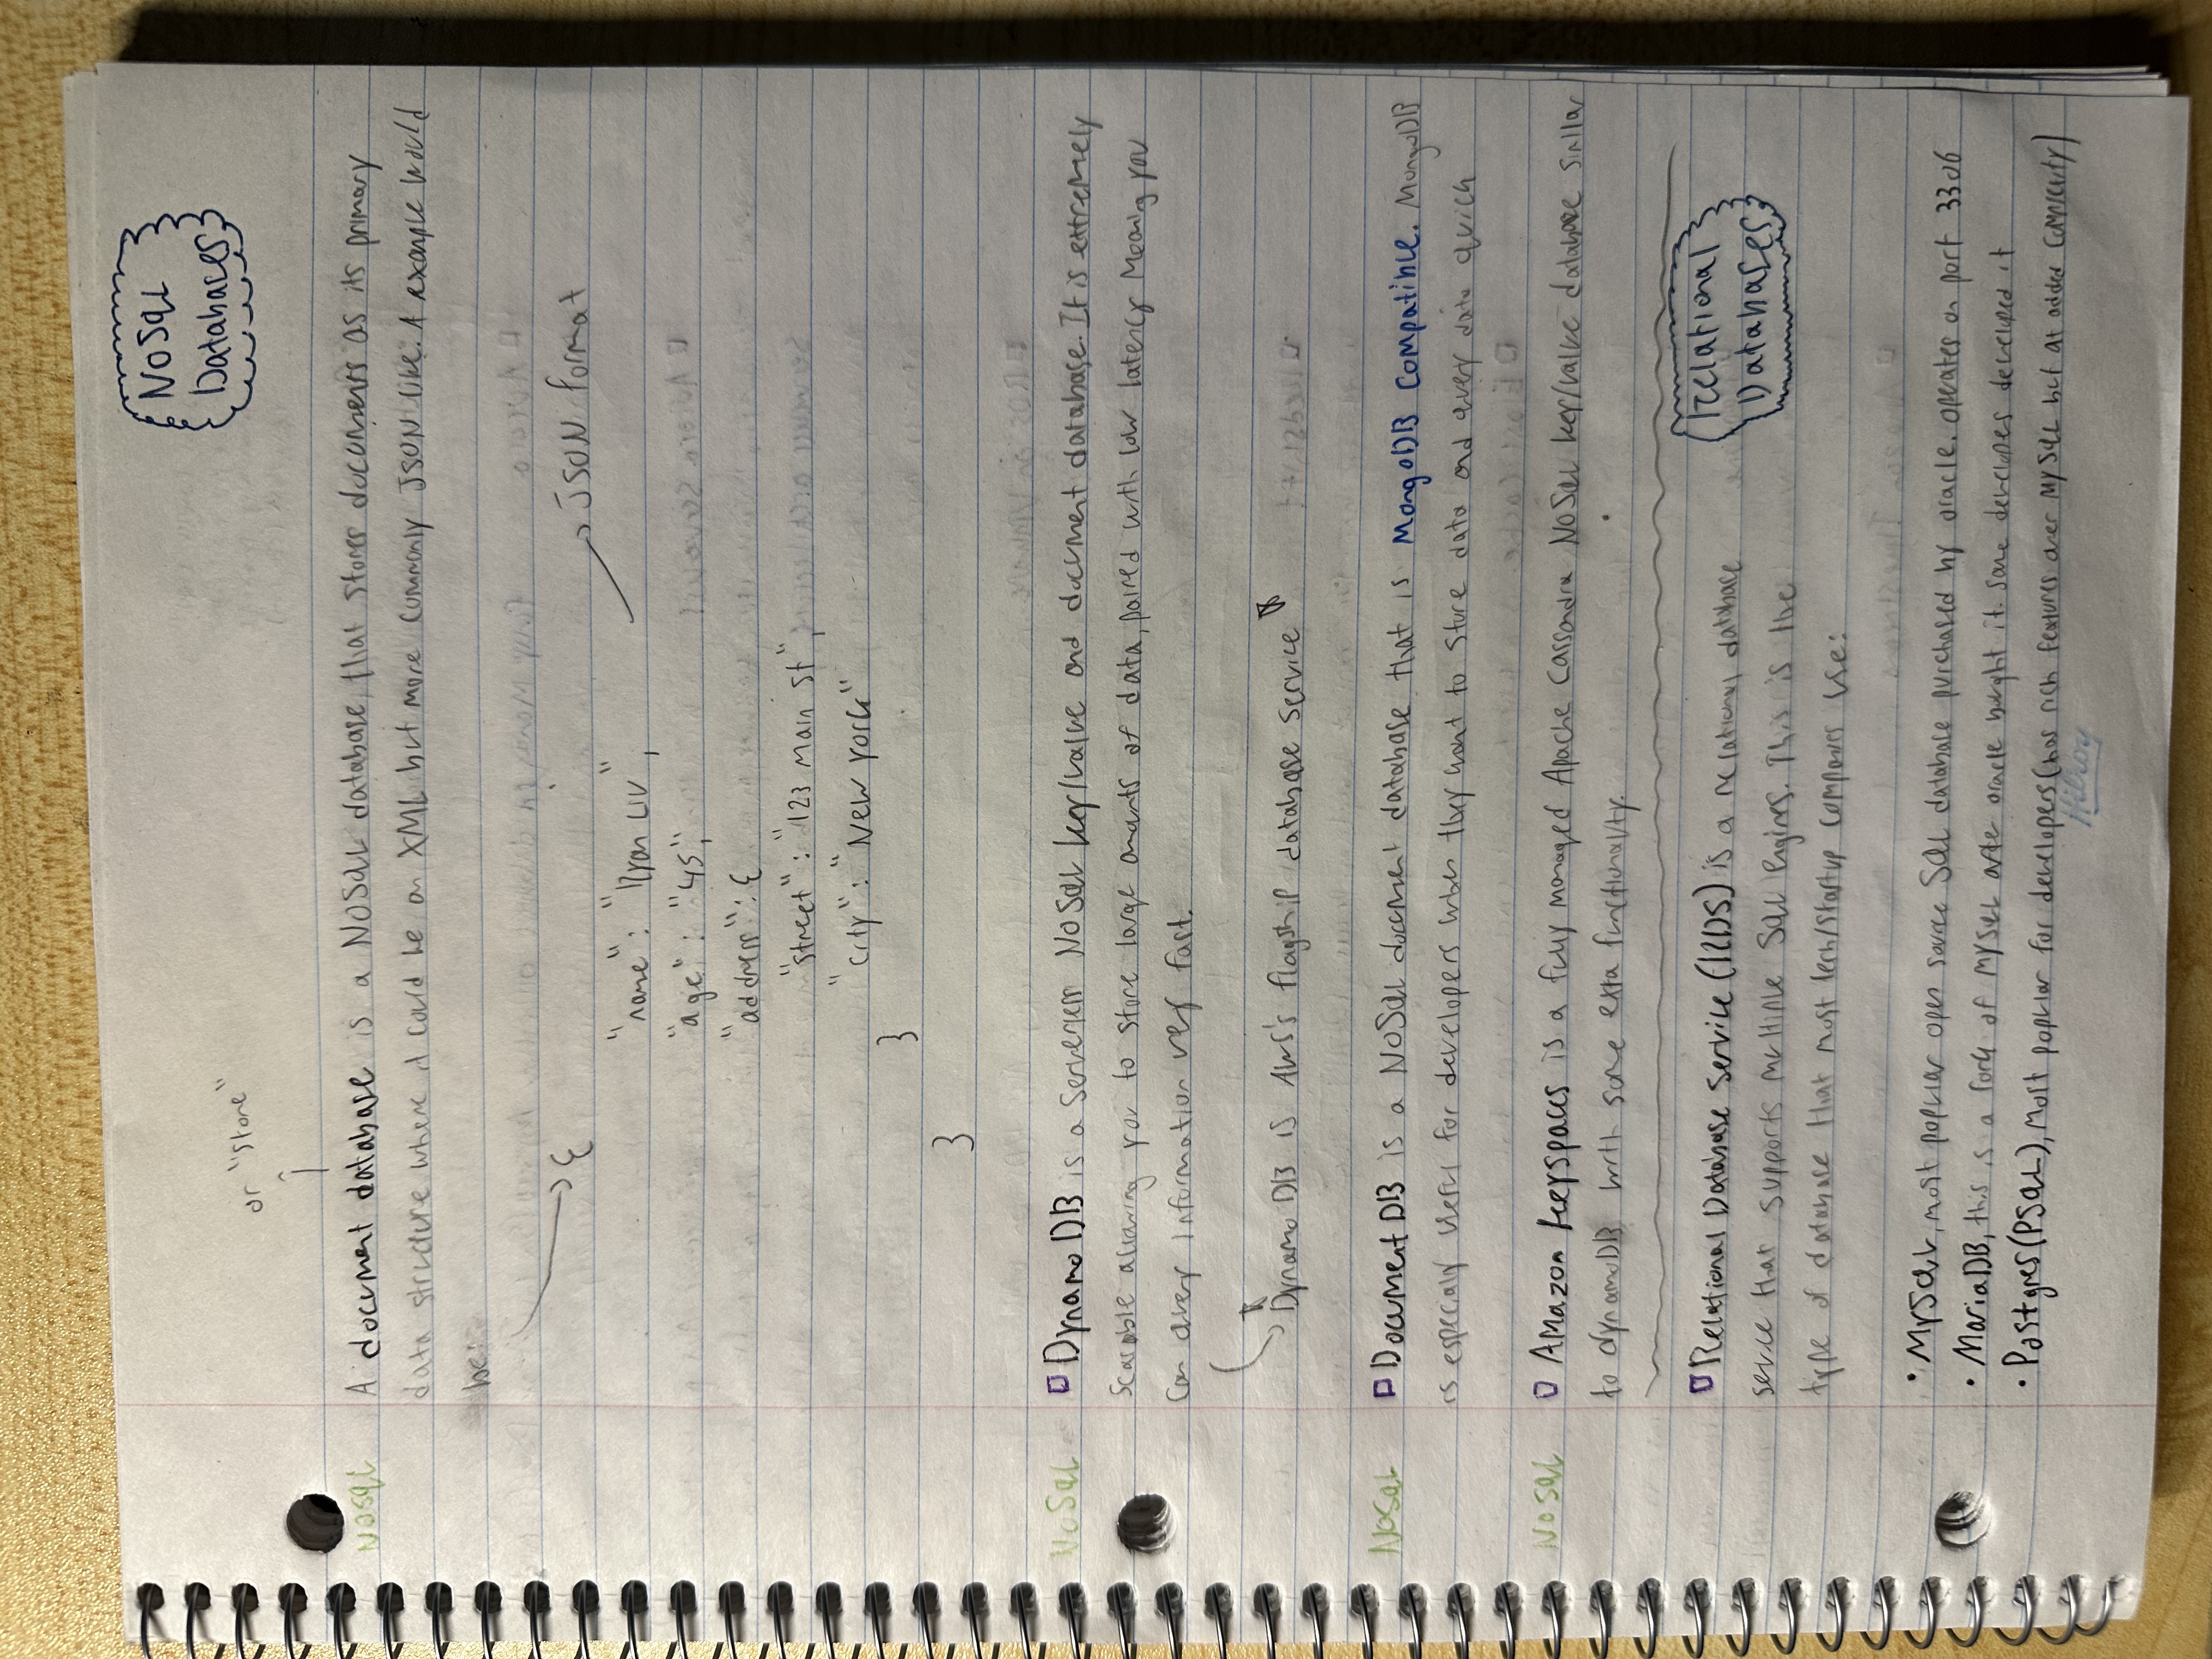 NoSQL
Databases
or "Store"
NoSQL
A document database is a NoSQL database, that stores documents as its primary
data structure where it could be an XML but more commonly JSON like. A example would
be:
{
JSON format
"name": "Ryan Liu",
"age": "45",
"address": {
"street": "123 main st",
"city": "New York"
}
}
NoSQL
DynamoDB is a Serverless NoSQL key/value and document database. It is extremely
scalable allowing you to store large amounts of data, paired with low latency meaning you
can query information very fast.
DynamoDB is AWS's flagship database service
NoSQL
DocumentDB is a NoSQL document database that is MongoDB compatible. MongoDB
is especialy useful for developers when they want to store data and query data quick
NoSQL
Amazon keyspaces is a fully managed Apache Cassandra NoSQL key/value database similar
to dynamoDB with some exta functionality.
Relational
Databases
Relational Database Service (RDS) is a relational database
service that supports multiple SQL engines. This is the
type of database that most tech/startup companies use:
• MySQL, most popular open source SQL database purchased by oracle. operates on port 3306
• MariaDB, this is a fork of MySQL after oracle bought it. some developes developed it
• Postgres (PSQL), most popular for developers (has rich features over MySQL but at added complexity)
Hilroy